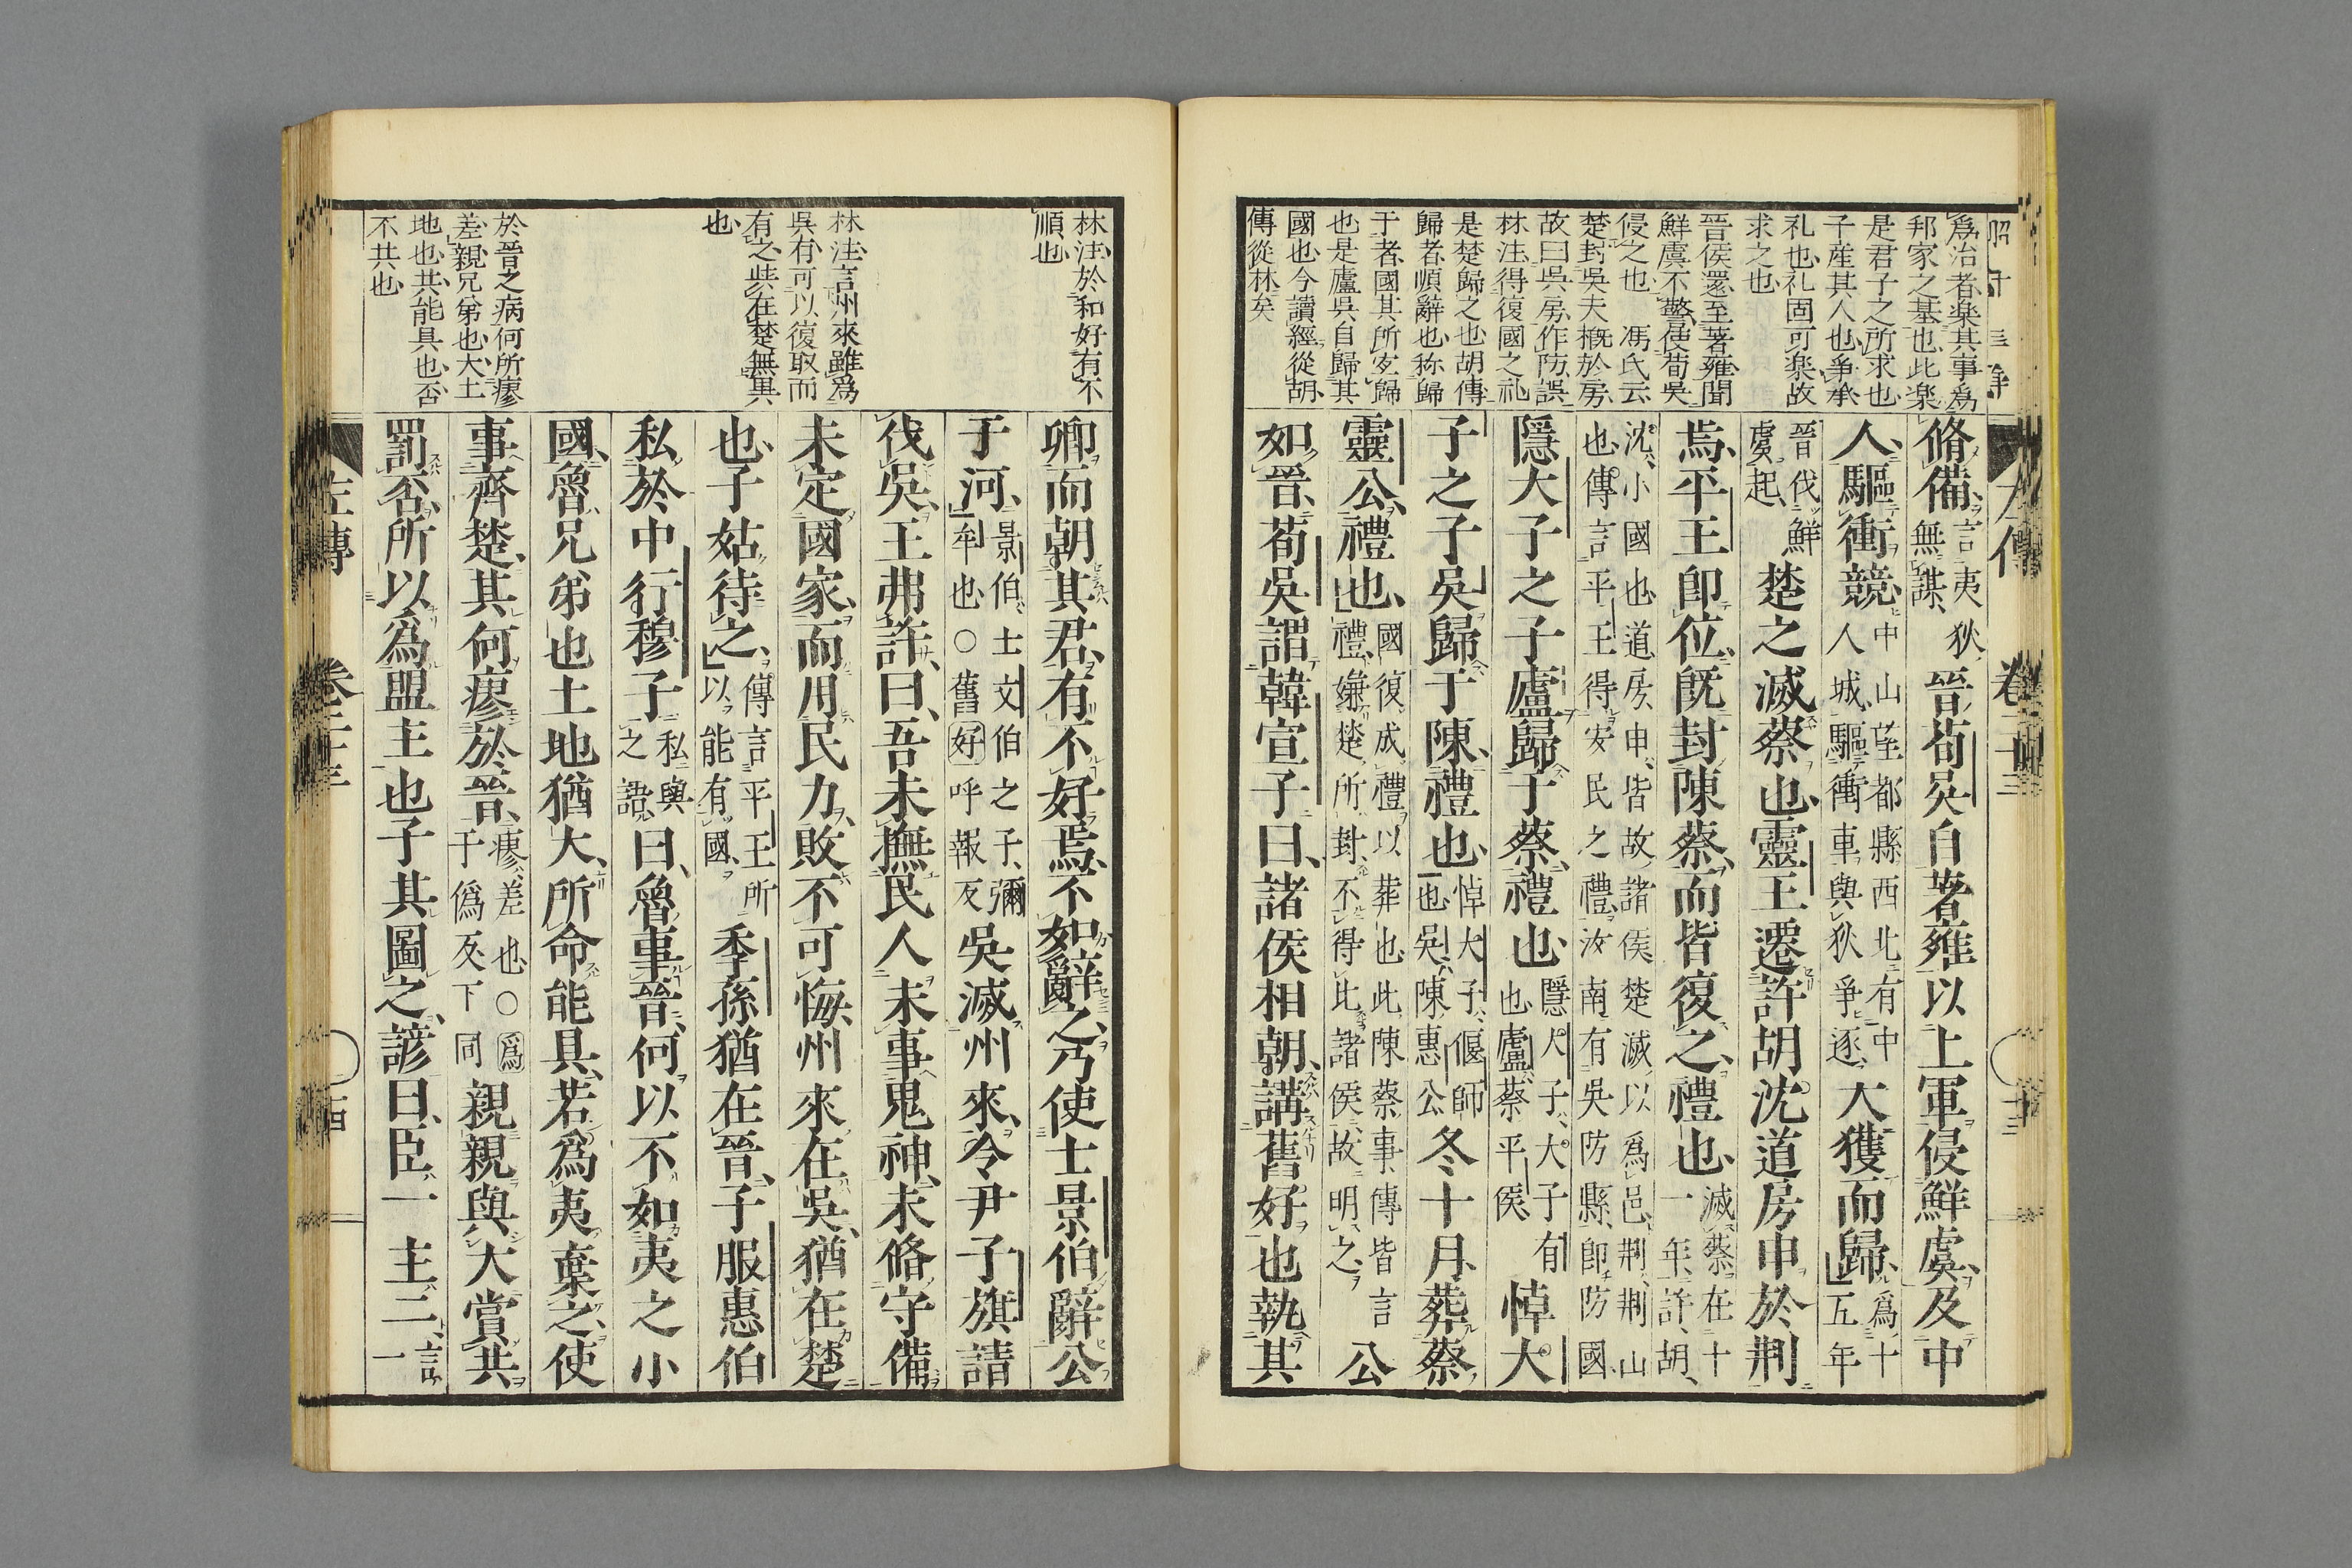 爲治者樂其事爲
邦家之基也此楽
是君子之所求也
子産其人也爭承
礼也礼固可楽故
求之也
晉侯還至著雍聞
鮮虞不警使荀吳
侵之也 馮氏云
楚封吳夫槪於房
故曰吳房作防誤
林注得復國之礼
是楚歸之也胡傳
歸者順辭也称歸
于者國其所宜歸
也是廬吳自歸其
國也今讀經從胡
傳從林矣
脩備言夷狄無謀晉荀吳自著雍以上軍侵鮮虞及中
人驅衝競中山望都縣西北有中人城驅衝車與狄爭逐大獲而歸爲十五年
晉伐鮮虞起楚之滅蔡也靈王遷許胡沈道房申於荆
焉平王卽位旣封陳蔡而皆復之禮也滅蔡在十一年許胡
沈小國也道房申皆故諸侯楚滅以爲邑荆荆山也傳言平王得安民之禮汝南有吳防縣卽防國
隱大子之子廬歸于蔡禮也隱大子大子有也廬蔡平侯悼大
子之子吳歸于陳禮也悼大子偃師也吳陳惠公冬十月葬蔡
靈公禮也國復成禮以葬也此陳蔡事傳皆言禮嫌楚所封不得比諸侯故明之公
如晉荀吳謂韓宣子曰諸侯相朝講舊好也執其
林注於和好有不
順也
林注言州來雖爲
吳有可以復取而
有之此在楚無異
也
於晉之病何所瘳
差親兄弟也大土
地也共能具也否
不共也
卿而朝其君有不好焉不如辭之乃使士景伯辭公
于河景伯士文伯之子彌牟也○舊好呼報反吳滅州來令尹子旗請
伐吳王弗許曰吾未撫民人未事鬼神未脩守備
未定國家而用民力敗不可悔州來在吳猶在楚
也子姑待之傳言平王所以能有國季孫猶在晉子服惠伯
私於中行穆子私與之語曰魯事晉何以不如夷之小
國魯兄弟也土地猶大所命能具若爲夷棄之使
事齊楚其何瘳於晉瘳差也○爲于僞反下同親親與大賞共
罰否所以爲盟主也子其圖之諺曰臣一主二言一
左傳 卷二十三